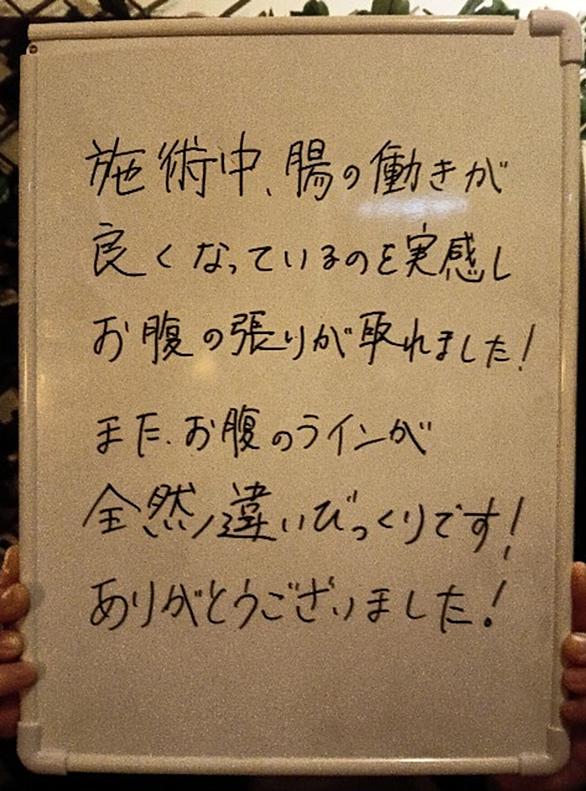 施術中、腸の働きが
良くなっているのを実感し
お腹の張りが取れました!
また、お腹のラインが
全然違いびっくりです!
ありがとうございました!